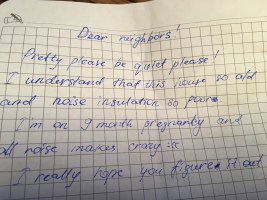 Dear neighbors!
Pretty please be quiet please!
I understand that this house so old
and noise insulation so poor.
I'm on 9 month pregnanty and
all noise makes crazy is
I really hope you figure it out